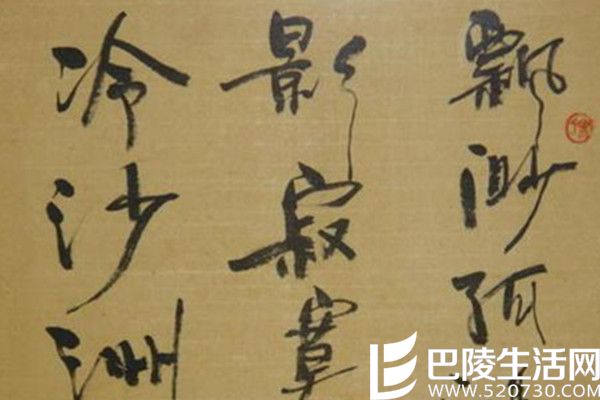 飘渺孤
影寂寞
冷沙洲
巴陵生活网
WWW.520730.COM